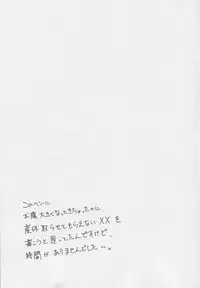 このペンに
お腹大きくなってきちゃったのに
産休取らせてもらえない××を
書こうと思ってたんですけど、
時間がありませんでした…。